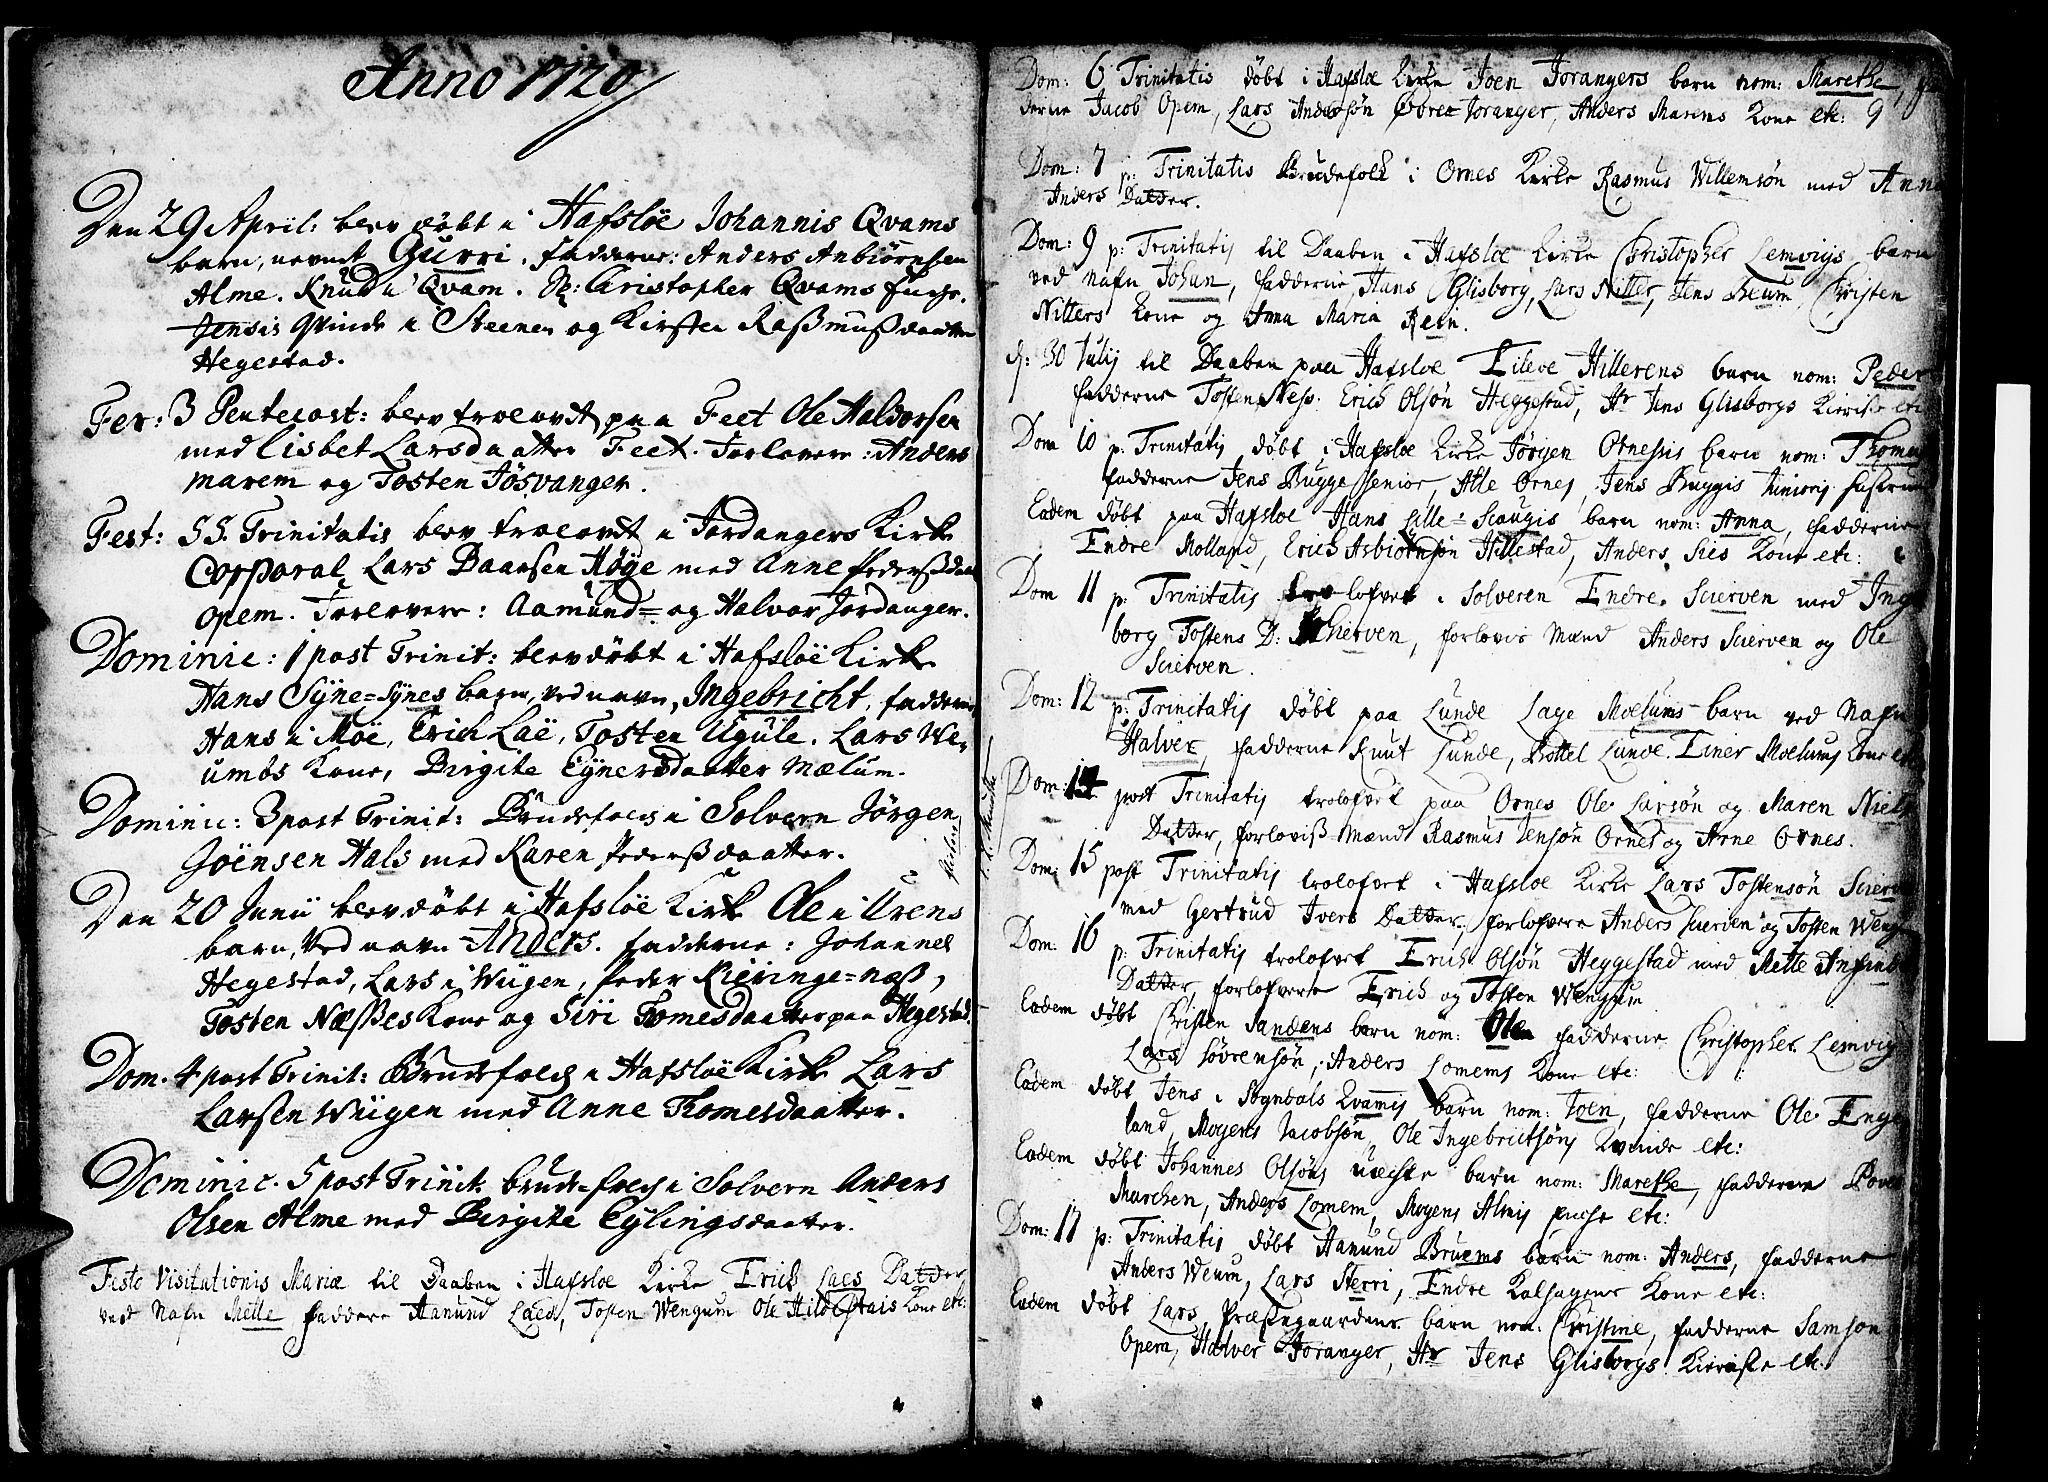 Anno 1720
Den 29 April: blev döbt i Hafslöe Johannis Qvams
barn, nevnt Gurri. fadderne: Anders Anbiörnsen
Alme. Knud i Qvam. Christopher Qvams
Jensis Qvinde i Steenen og Kirsten Rasmusdaatter
Hegestad.
Fer: 3 Pentecost: blev troelovet paa Feet Ole Haldorsen
med Lisbet Larsdaatter Feet. Forlovere: Anders
marem og Tosten Jösvanger.
Fest: SS. Trinitatis blev troelovet i Jordangers Kirke
Corporal Lars Baarsen Höye med Anne Pedersdaa
opem. Forlovere: Aamund= og Halvor Jordanger.
Dominic: 1 post Trinit: blev döbt i Hafslöe Kirke
Hans Syne=synes barn, ved navn, Ingebricht, fadderne
Hans i Moe, Erich Lae, Tosten Ugule. Lars We-
umbs Kone, Birgite Eynersdaatter Mælum.
Dominic: 3 post Trinit: Brudefolch i Solvern Jörgen
Joensen Hals med Karen Pedersdaatter.
Den 20 Junii blev döbt i Hafslöe Kirke Ole i Urens
barn, ved navn Anders. fadderne: Johannes
Hegestad, Lars i Wiigen, Peder Kieringe=næss,
Tosten Næsses Kone og Siri Tomesdaatter paa Hegestad.
Dom. 4 post Trinit: Brudefolch i Hafslöe Kirke Lars
Larsen Wiigen med Anne Thomesdaatter.
Dominic. 5 post Trinit: brudefolch i Solvern Anders
Olsen Alme med Birgite Eylingsdaatter.
Festo Visitationis Mariæ til Daaben i Hafsloe Kirke Erich Laes Datter
ved Nafn Mette faddere Aamund Laed, Tosten Wengum Ole Hildestais Kone etc:
Dom: 6 Trinitatis döbt i Hafsloe Kirke Joen Jorangers barn nom: Marethe,
derne Jacob Opem, Lars Andersön Öbre Joranger, Anders Marems Kone etc: 9
Dom: 7 p: Trinitatis Brudefolk i Ornes Kirke Rasmus Willemsön med Anna
Anders Datter.
Dom: 9 p: Trinitatis til Daaben i Hafsloe Kirke Christopher Lemvigs barn
ved Nafn Johan, fadderne, Hans Glisborg, Lars Nitter, Jens Christen
Nitters Kone og Anna Maria Rein.
d: 30 Julij til Daaben paa Hafsloe Eileve Hillerens barn nom: Peder
fadderne Tosten Ness. Erich Olsön Heggestad, Hr Jens Glisborgs Kieriste etc
Dom 10 p: Trinitatis döbt i Hafsloe Kirke Jörgen Ornessis barn nom: Thomas
fadderne Jens Bugge senior, Atle Ornes, Jens Buggis Junioris
Eadem döbt paa Hafsloe Hans Lille=Scougis barn nom: Anna, fadderne
Endre Molland, Erich Asbiörnsön Hillestad, Anders Sies Kone etc:
Dom 11 p: Trinitatis trolofvet i Solveren Endre Scierven med Inge
borg Tostens D: Schierven, forlovis Mænd Anders Scierven og Ole
Scierven.
Dom: 12 p: Trinitatis döbt paa Lunde Lage Moelums barn ved Nafn
Halver, fadderne Knut Lunde, Bottel Lunde. Einer Moelums Kone etc
Dom: 14 post Trinitatis trolofvet paa Ornes Ole Larsön og Maren Niels
Datter, forloviss mænd Rasmus Jensön Ornes og Arne Ornes.
Dom: 15 post Trinitatis trolofvet i Hafsloe Kirke Lars Tostensön Scierv
med Gertrud Ivers Datter, forlofvere Anders Scierven og Tosten Weng
Dom: 16 p: Trinitatis trolofvet Erich Olsön Heggestad med Mette Anfinds
Datter, forlofverne Erich og Tosten Wengum
Eadem döbt Christen Sandens barn nom: Ole, fadderne Christopher Lemvig
Lars Sövrensön, Anders Lomems Kone etc:
Eadem döbt Jens i Sogndals Kvamis barn nom: Joen, fadderne Ole Enge
land, Mogens Jacobsön, Ole Ingebrictsöns Kvinde etc:
Eadem döbt Johannes Olsöns uægte barn nom: Marethe, fadderne Povel
Murchen, Anders Lomem, Mogens Almis etc:
Dom: 17 p: Trinitatis döbt Aamund Bruems barn nom: Anders, fadderne
Anders Weum, Lars Sterri, Endre Kalhagens Kone etc:
Eadem döbt Lars Præstegaardens barn nom: Christine, fadderne Samson
Opem, Halver Joranger, Hr Jens Glisborgs Kieriste etc.